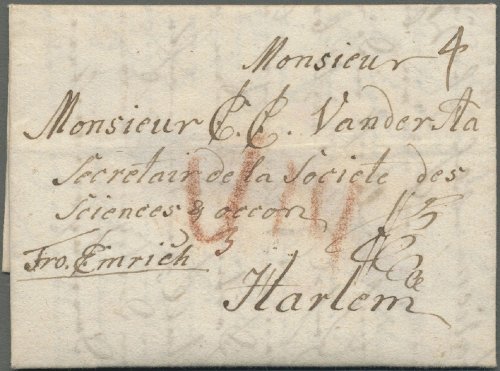 Monsieur 4
Monsieur C. C. Vander Aa
Secretair de la Societe des
Sciences &
Fro. Emrich 3
Harlem